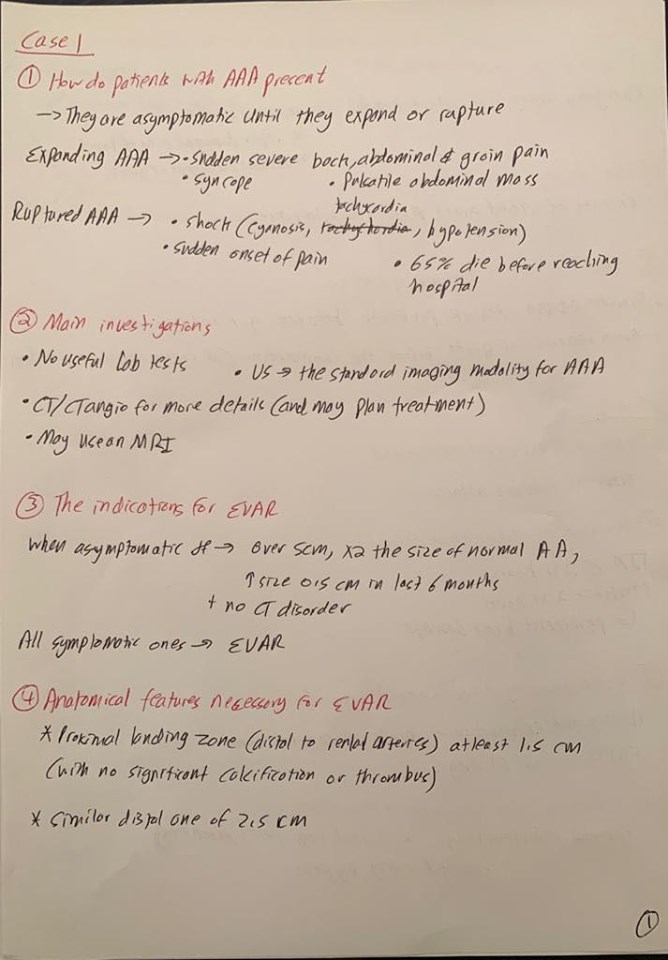 Case 1
① How do patients with AAA present
→ They are asymptomatic until they expand or rapture
Expanding AAA → • sudden severe back, abdominal & groin pain
• syncope • Pulsatile abdominal mass
tachycardia
Ruptured AAA → • shock (cyanosis, , hypotension)
• sudden onset of pain • 65% die before reaching
hospital
② Main investigations
• No useful lab tests • US → the standard imaging modality for AAA
• CT/CT angio for more details (and may plan treatment)
• May use an MRI
③ The indications for EVAR
when asymptomatic → over 5cm, x2 the size of normal AA,
↑ size 0.5 cm in last 6 months
+ no CT disorder
All symptomatic ones → EVAR
④ Anatomical features necessary for EVAR
* Proximal landing zone (distal to renal arteries) at least 1.5 cm
(with no significant calcification or thrombus)
* similar distal one of 2.5 cm
①